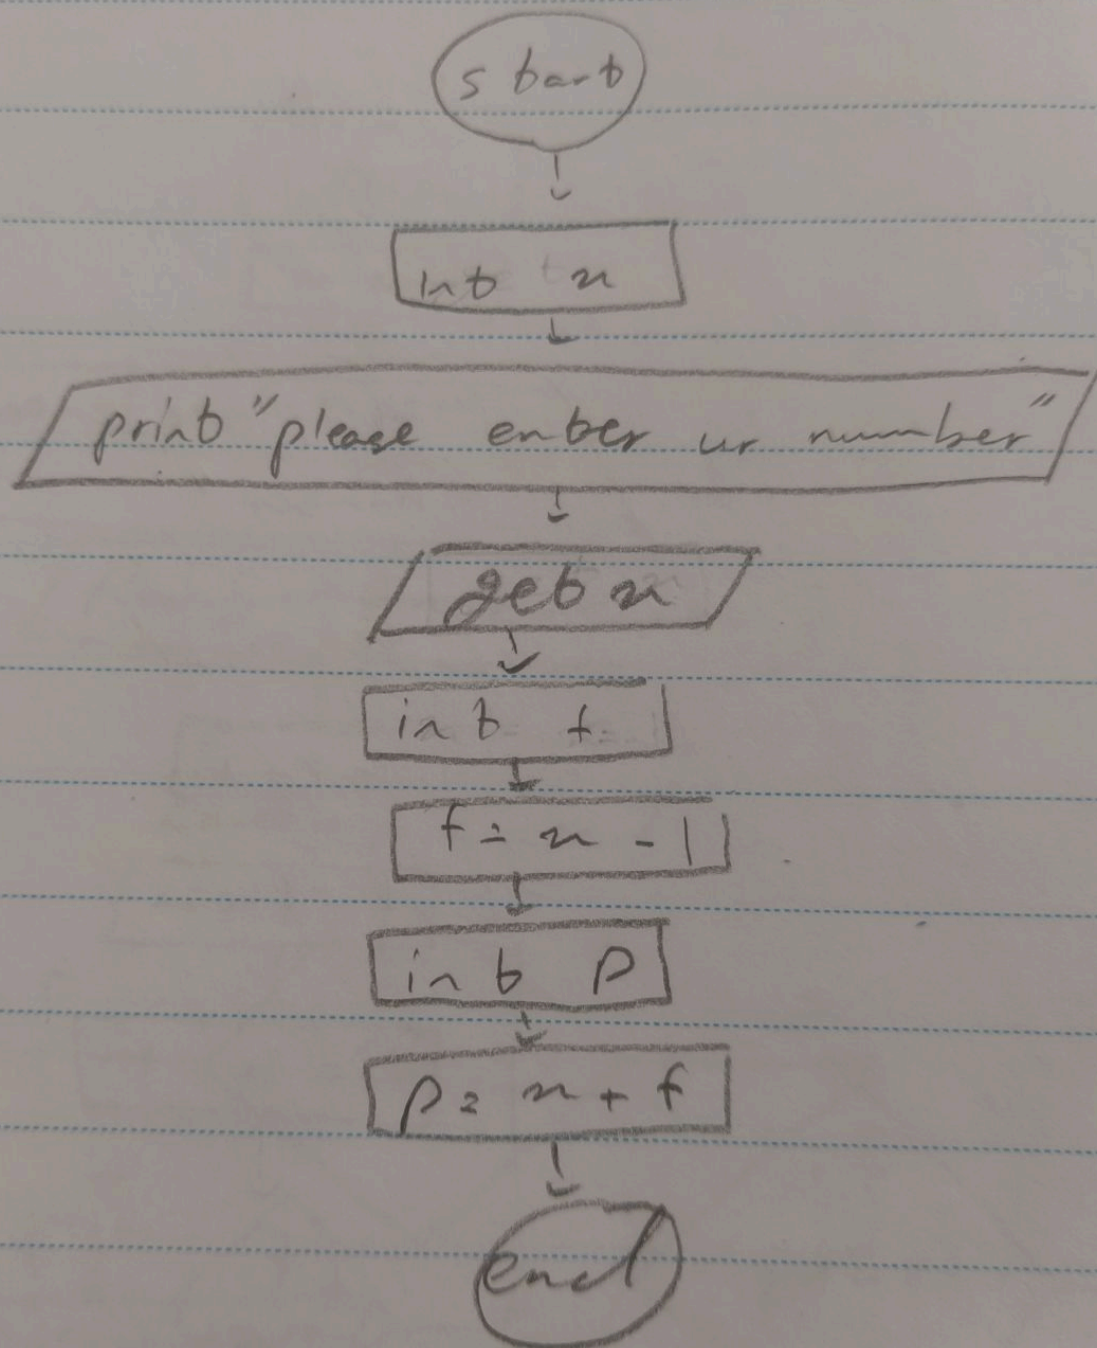 start
int n
print "please enter ur number"
get n
int f
f = n - 1
int p
p = n + f
end